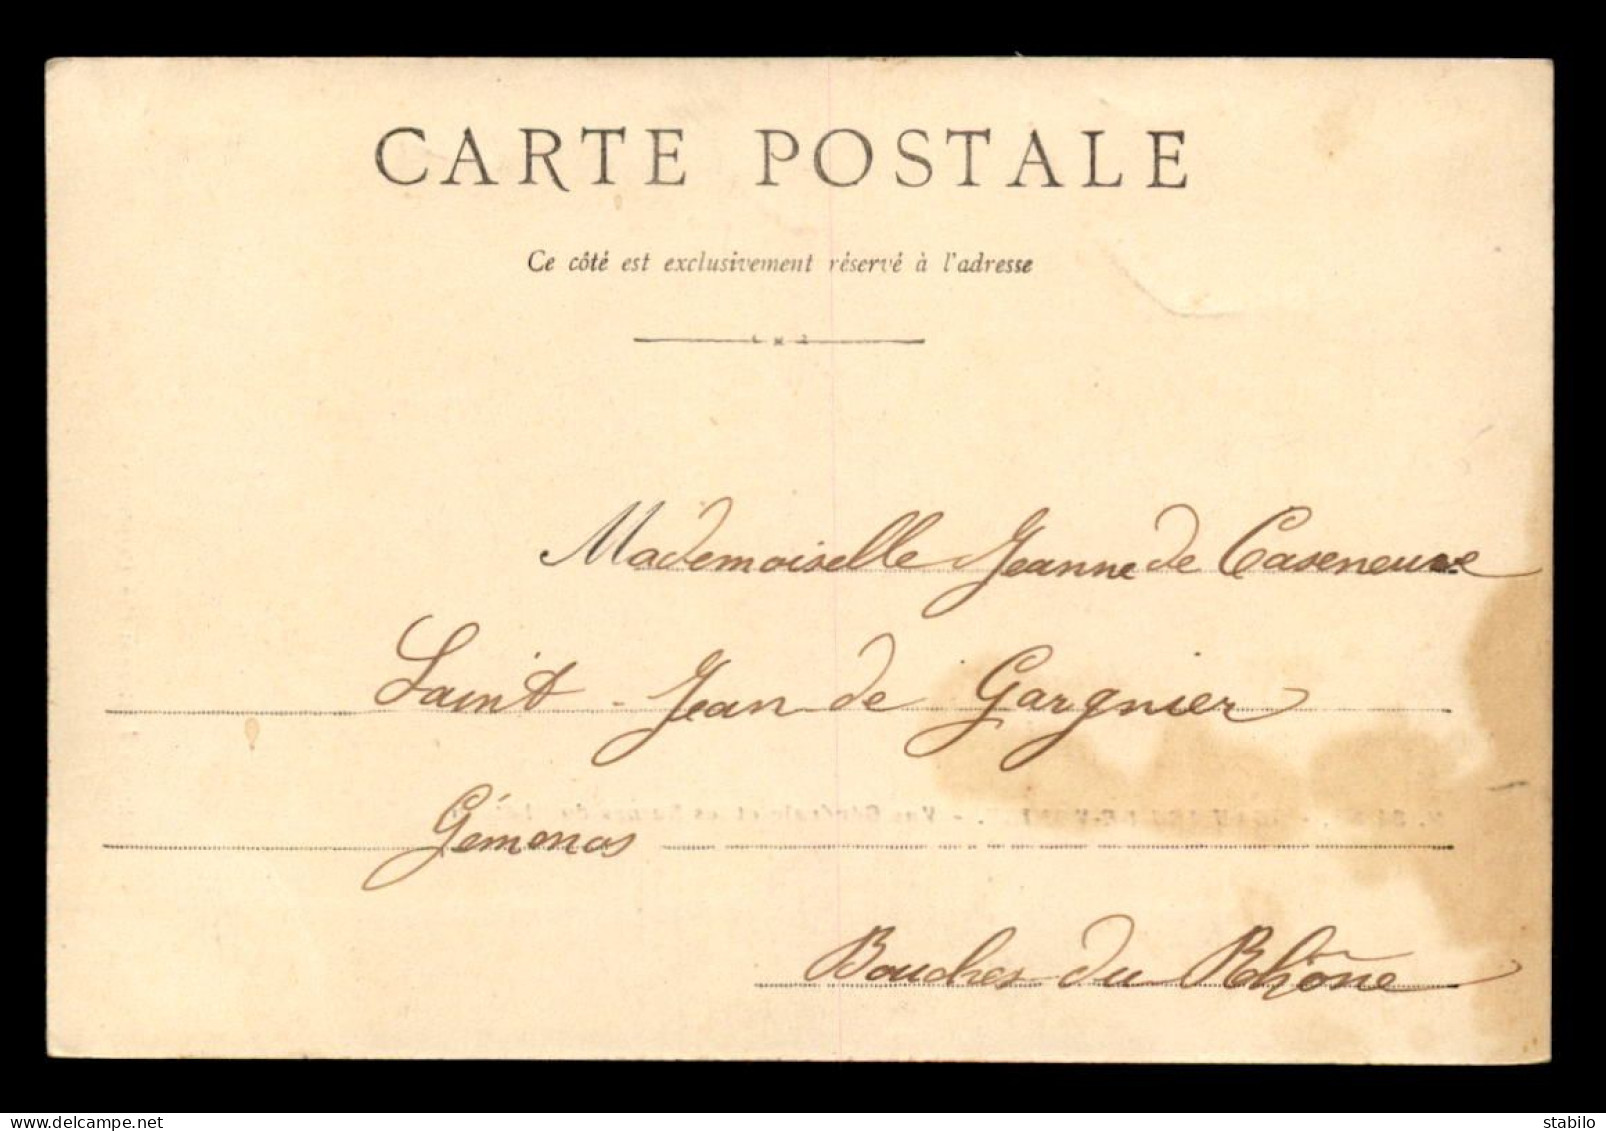 CARTE POSTALE
Ce côté est exclusivement réservé à l'adresse
Mademoiselle Jeanne de Caseneuve
Saint-Jean de Gargnier
Gémenos
Bouches du Rhône
www.delcampe.net
stabilo